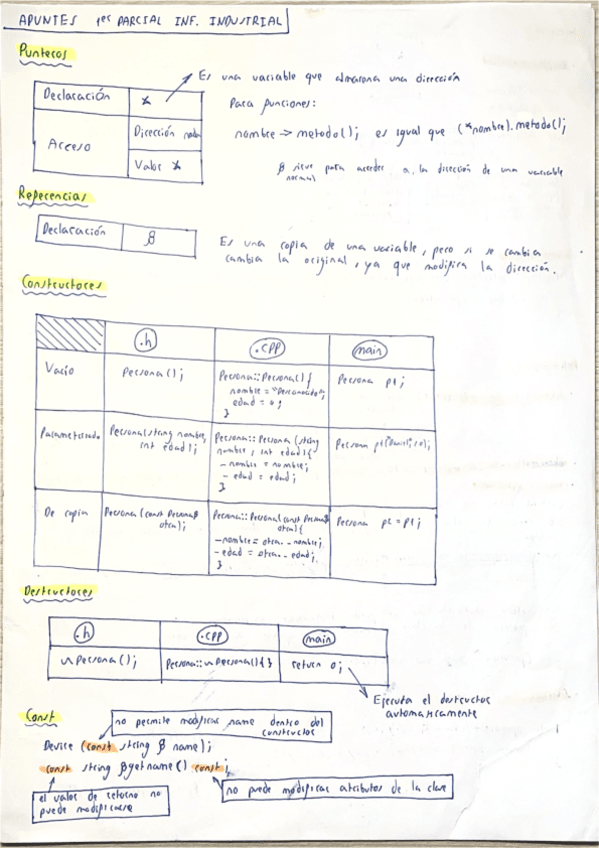 APUNTES 1er PARCIAL INF. INDUSTRIAL
Punteros
Declaración *
Acceso Dirección nada
Valor *
Es una variable que almacena una dirección
Para funciones:
nombre -> metodo(); es igual que (*nombre).metodo();
& sirve para acceder a la dirección de una variable
normal
Referencias
Declaración &
Es una copia de una variable, pero si se cambia
cambia la original, ya que modifica la dirección.
Constructores
.h .cpp main
Vacío Persona(); Persona::Persona(){ Persona p1;
nombre = "Desconocido";
edad = 0;
}
Parametrizado Persona(string nombre, Persona::Persona (string Persona
int edad); nombre, int edad){
_nombre = nombre;
_edad = edad;
}
De copia Persona (const Persona& Persona::Persona(const Persona& Persona p2 = p1;
otra); otra){
_nombre = otra._nombre;
_edad = otra._edad;
}
Destructores
.h .cpp main
~Persona(); Persona::~Persona(){} return 0;
Ejecuta el destructor
automaticamente
Const
no permite modificar name dentro del
constructor
Device (const string & name);
const string &getname() const;
el valor de retorno no
puede modificarse
no puede modificar atributos de la clase